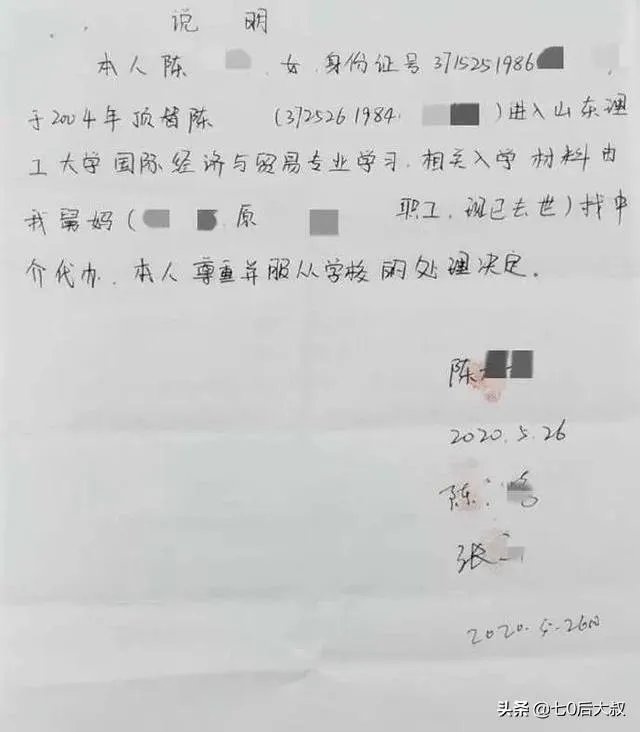 说 明
本人陈 女 身份证号 3715251986
于2004年顶替陈 (3725261984. )进入山东理
工大学国际经济与贸易专业学习. 相关入学材料由
我舅妈( 原 职工. 现已去世)找中
介代办. 本人尊重并服从学校的处理决定。
陈
2020.5.26
陈
张
2020.5.26
头条 @七0后大叔